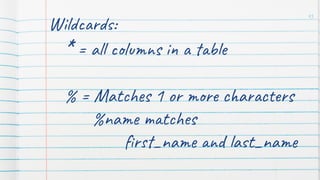 Wildcards:
* = all columns in a table
% = Matches 1 or more characters
%name matches
first_name and last_name